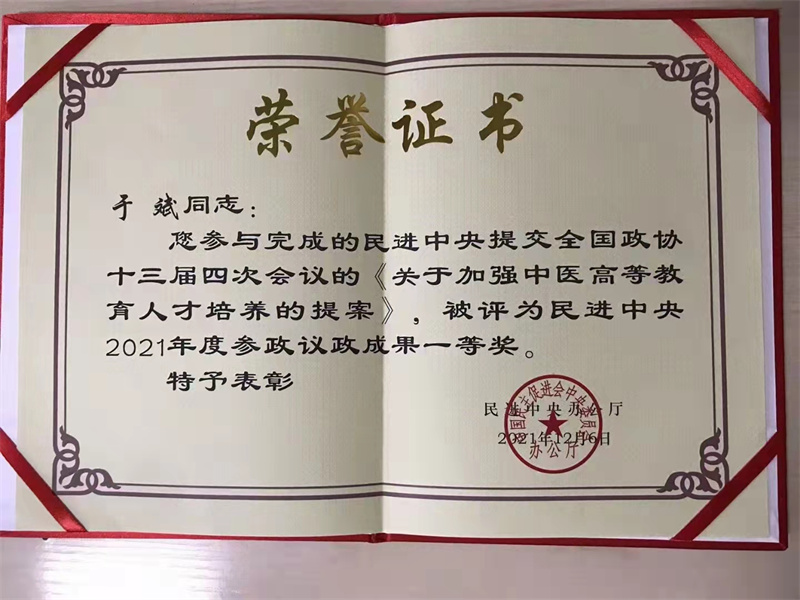 荣誉证书
于斌同志：
您参与完成的民进中央提交全国政协
十三届四次会议的《关于加强中医高等教
育人才培养的提案》，被评为民进中央
2021年度参政议政成果一等奖。
特予表彰
民进中央办公厅
2021年12月6日
中国民主促进会中央委员会
办公厅